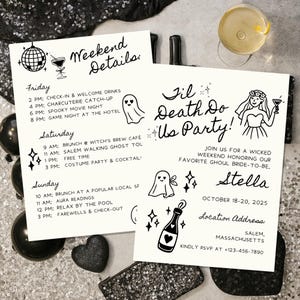 Weekend
Details
Friday
2 PM: CHECK-IN & WELCOME DRINKS
4 PM: CHARCUTERIE CATCH-UP
6 PM: SPOOKY MOVIE NIGHT
8 PM: GAME NIGHT AT THE HOTEL
Saturday
9 AM: BRUNCH @ WITCH'S BREW CAFE
AM: SALEM WALKING GHOST TO
1 PM: FREE TIME
3 PM: COSTUME PARTY & COCKTAIL
Sunday
10 AM: BRUNCH AT A POPULAR LOCAL
11 AM: AURA READINGS
12 PM: RELAX BY THE POOL
3 PM: FAREWELLS & CHECK-OUT
Til
Death Do
Us Party!
JOIN US FOR A WICKED
WEEKEND HONORING OUR
FAVORITE GHOUL BRIDE-TO-BE,
Stella
OCTOBER 18-20, 2025
Location Address:
SALEM,
MASSACHUSETTS
KINDLY RSVP AT +123-456-7890